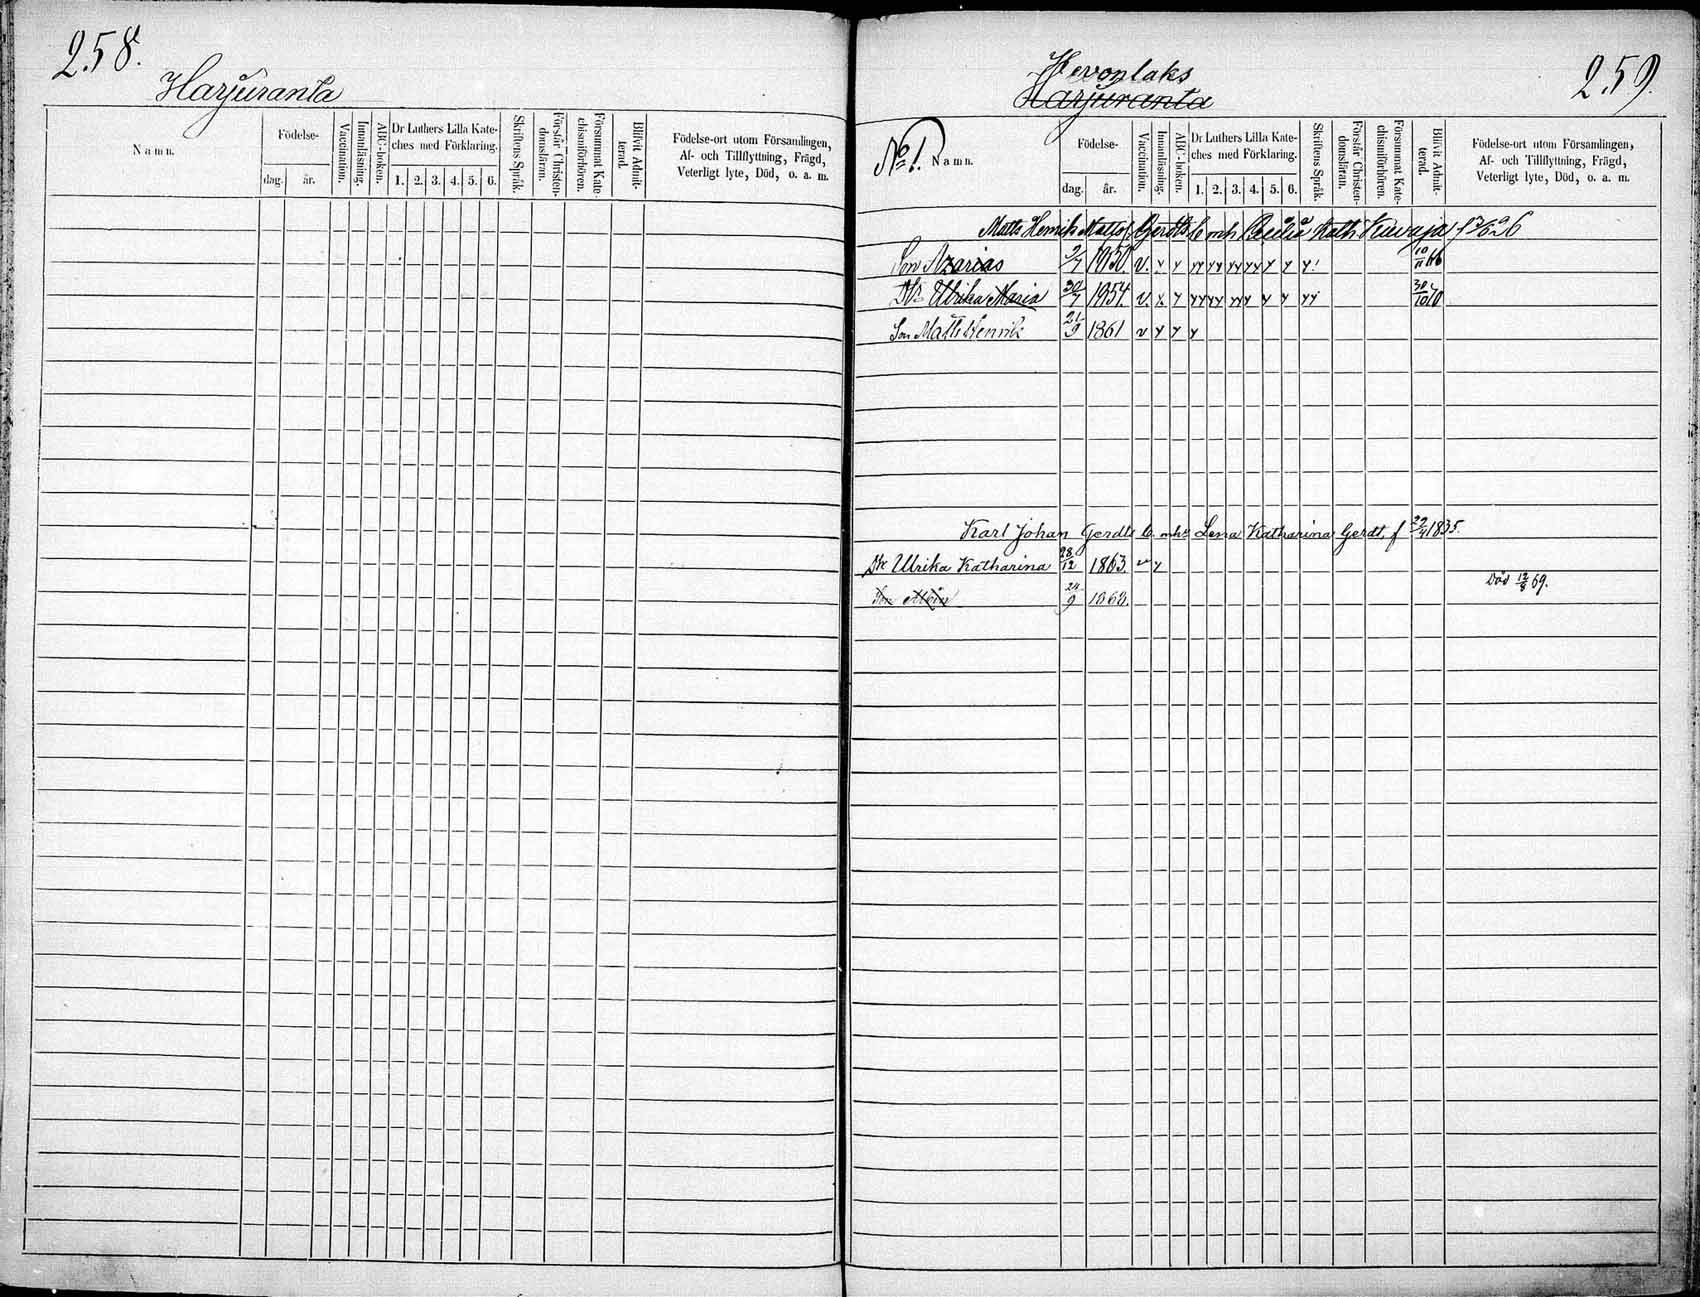 258.
Harjuranta
Namn.
Födelse-
dag.
år.
Vaccination.
Innanläsning.
ABC-boken.
Dr Luthers Lilla Kate-
ches med Förklaring.
1. 2. 3. 4. 5. 6.
Skriftens Språk.
Förstår Christen-
domsläran.
Försummat Kate-
chismiförhören.
Blifvit Admit-
terad.
Födelse-ort utom Församlingen,
Af- och Tillflyttning, Frägd,
Veterligt lyte, Död, o. a. m.
259.
Hevonlaks
Harjuranta
No 1.
Namn.
Födelse-
dag.
år.
Vaccination.
Innanläsning.
ABC-boken.
Dr Luthers Lilla Kate-
ches med Förklaring.
1. 2. 3. 4. 5. 6.
Skriftens Språk.
Förstår Christen-
domsläran.
Försummat Kate-
chismiförhören.
Blifvit Admit-
terad.
Födelse-ort utom Församlingen,
Af- och Tillflyttning, Frägd,
Veterligt lyte, Död, o. a. m.
Matts Henrik Gerdts Cecilia Kath.
Son Azarias 1850. v.
Dr Ulrika Maria 30/7 1854. v.
Son Matts Henrik 21/9 1861 v
Karl Johan Gerdts Lena Katharina Gerdt, f 1835.
Dr Ulrika Katharina 28/12 1863. v
Son Albin 24/9 1868. Död 12/8 69.